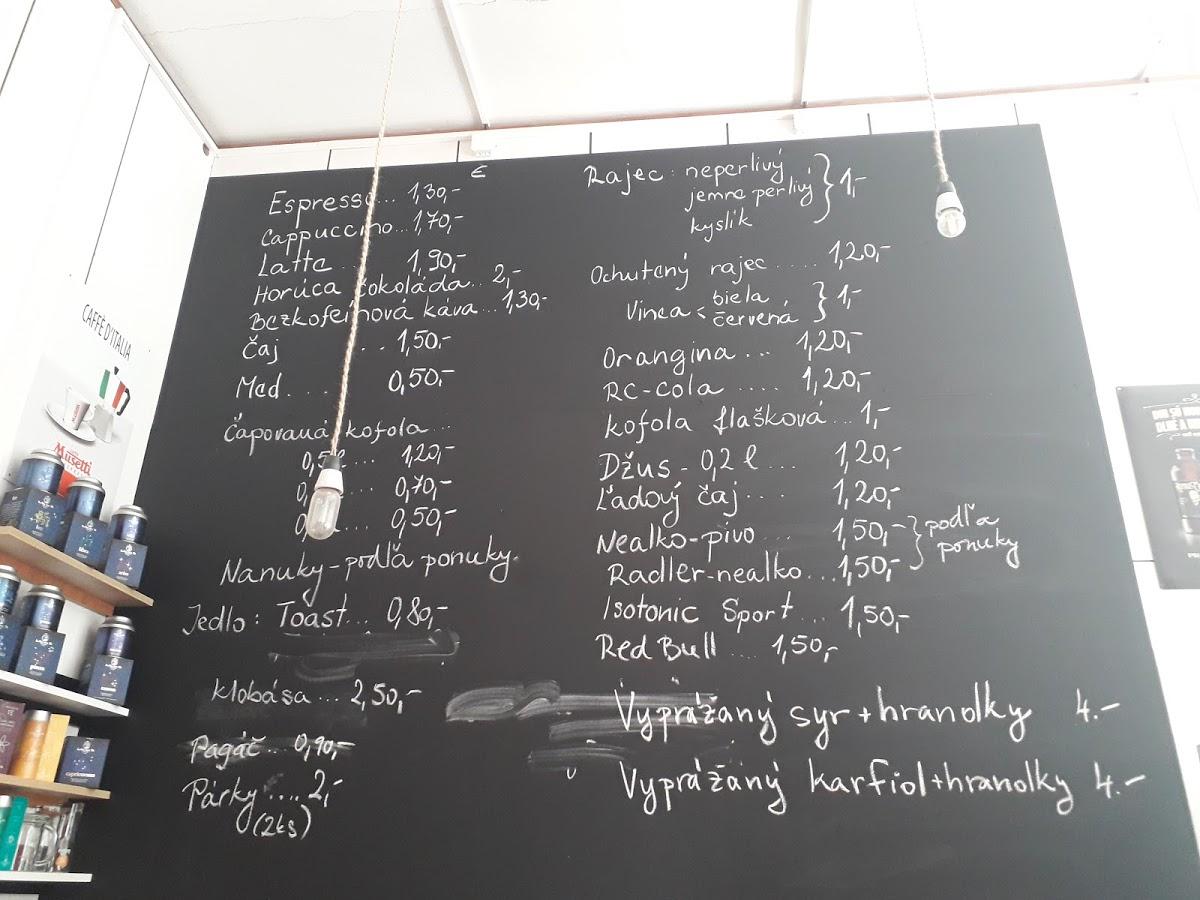 €
Espresso... 1,30,-
Cappuccino... 1,70,-
Latte ... 1,90,-
Horúca čokoláda.. 2,-
Bezkofeinová káva ... 1,30,-
Čaj ... 1,50,-
Med.... 0,50,-
Čapovaná kofola...
0,5l.... 1,20,-
0,70,-
0,50,-
Nanuky-podľa ponuky.
Jedlo: Toast... 0,80,-
Klobása... 2,50,-
Pagáč... 0,90,-
Párky.... 2,-
(2ks)
Rajec: neperlivý
jemne perlivý } 1,-
kyslík
Ochutený rajec ..... 1,20,-
Vinea < biela } 1,-
červená
Orangina ... 1,20,-
RC-Cola ..... 1,20,-
kofola flašková... 1,-
Džus - 0,2 l .... 1,20,-
Ľadový čaj.... 1,20,-
Nealko-pivo ... 1,50,- } podľa
ponuky
Radler-nealko... 1,50,-
Isotonic Sport ... 1,50,-
Red Bull .... 1,50,-
Vyprážaný syr+hranolky 4.-
Vyprážaný karfiol+hranolky 4.-
CAFFÈ D'ITALIA
Musetti